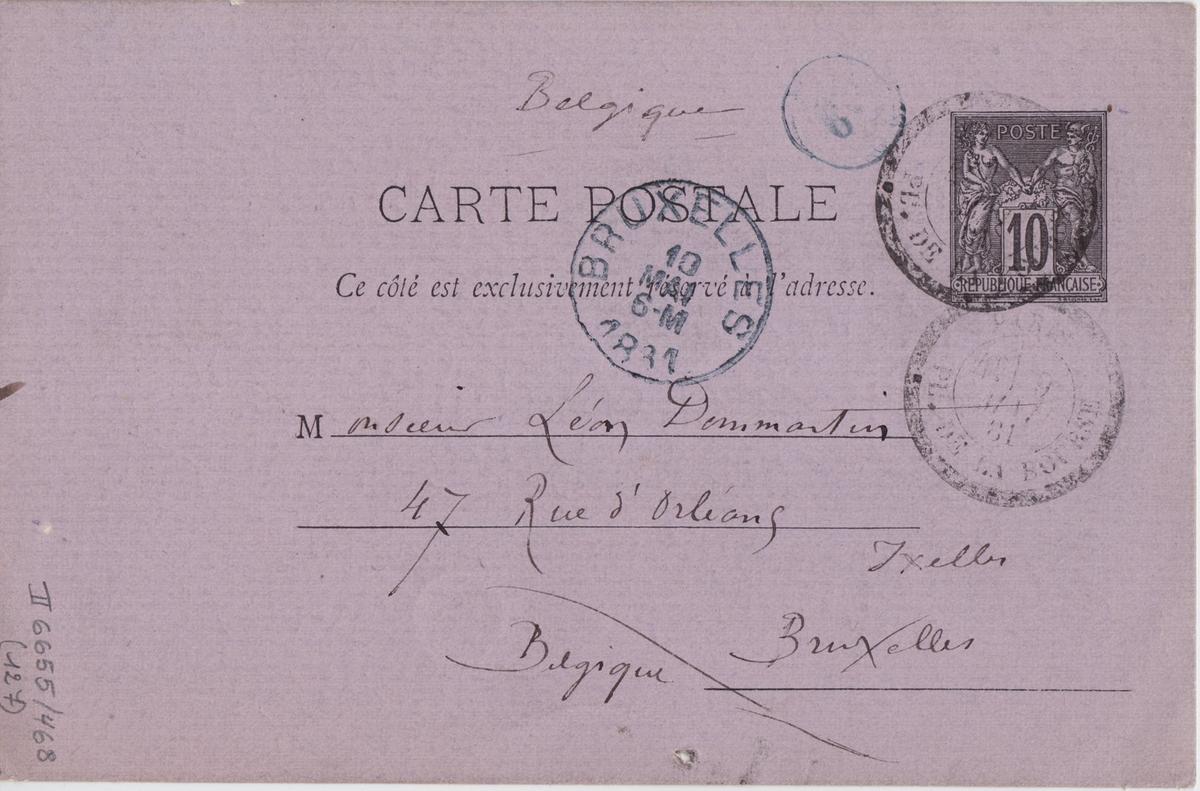 Belgique
6
POSTE
10
RÉPUBLIQUE FRANÇAISE
CARTE POSTALE
Ce côté est exclusivement réservé à l'adresse.
BRUXELLES
10
MAI
6-M
1881
PL. DE
PL. DE LA BOURSE
81
Monsieur Léon Dommartin
47 Rue d'Orléans
Ixelles
Bruxelles
Belgique
II 6655/468
(127)